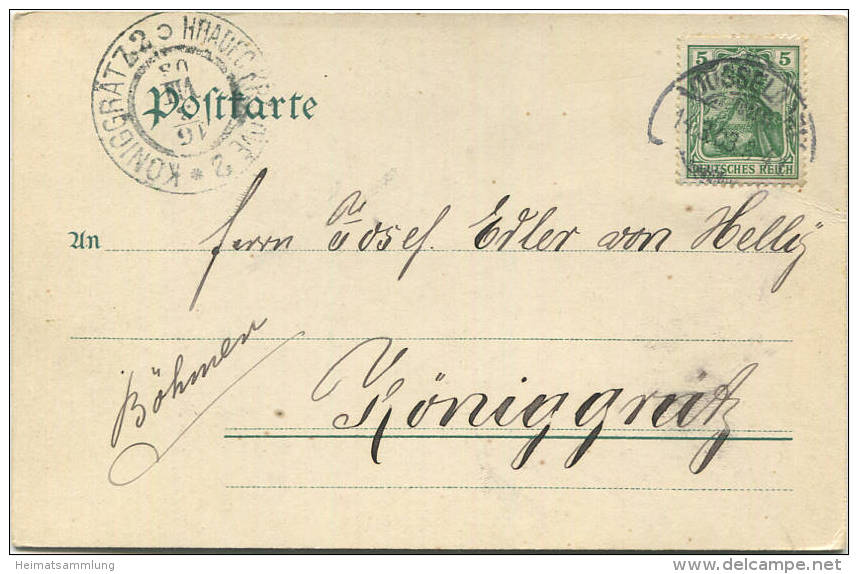 KÖNIGGRÄTZ 2
HRADEC KRÁLOVÉ 2
16
VII
03
5 5
DEUTSCHES REICH
Postkarte
An Herrn Josef Edler von Helly
Böhmen
Königgratz
Heimatsammlung
www.delcampe.net